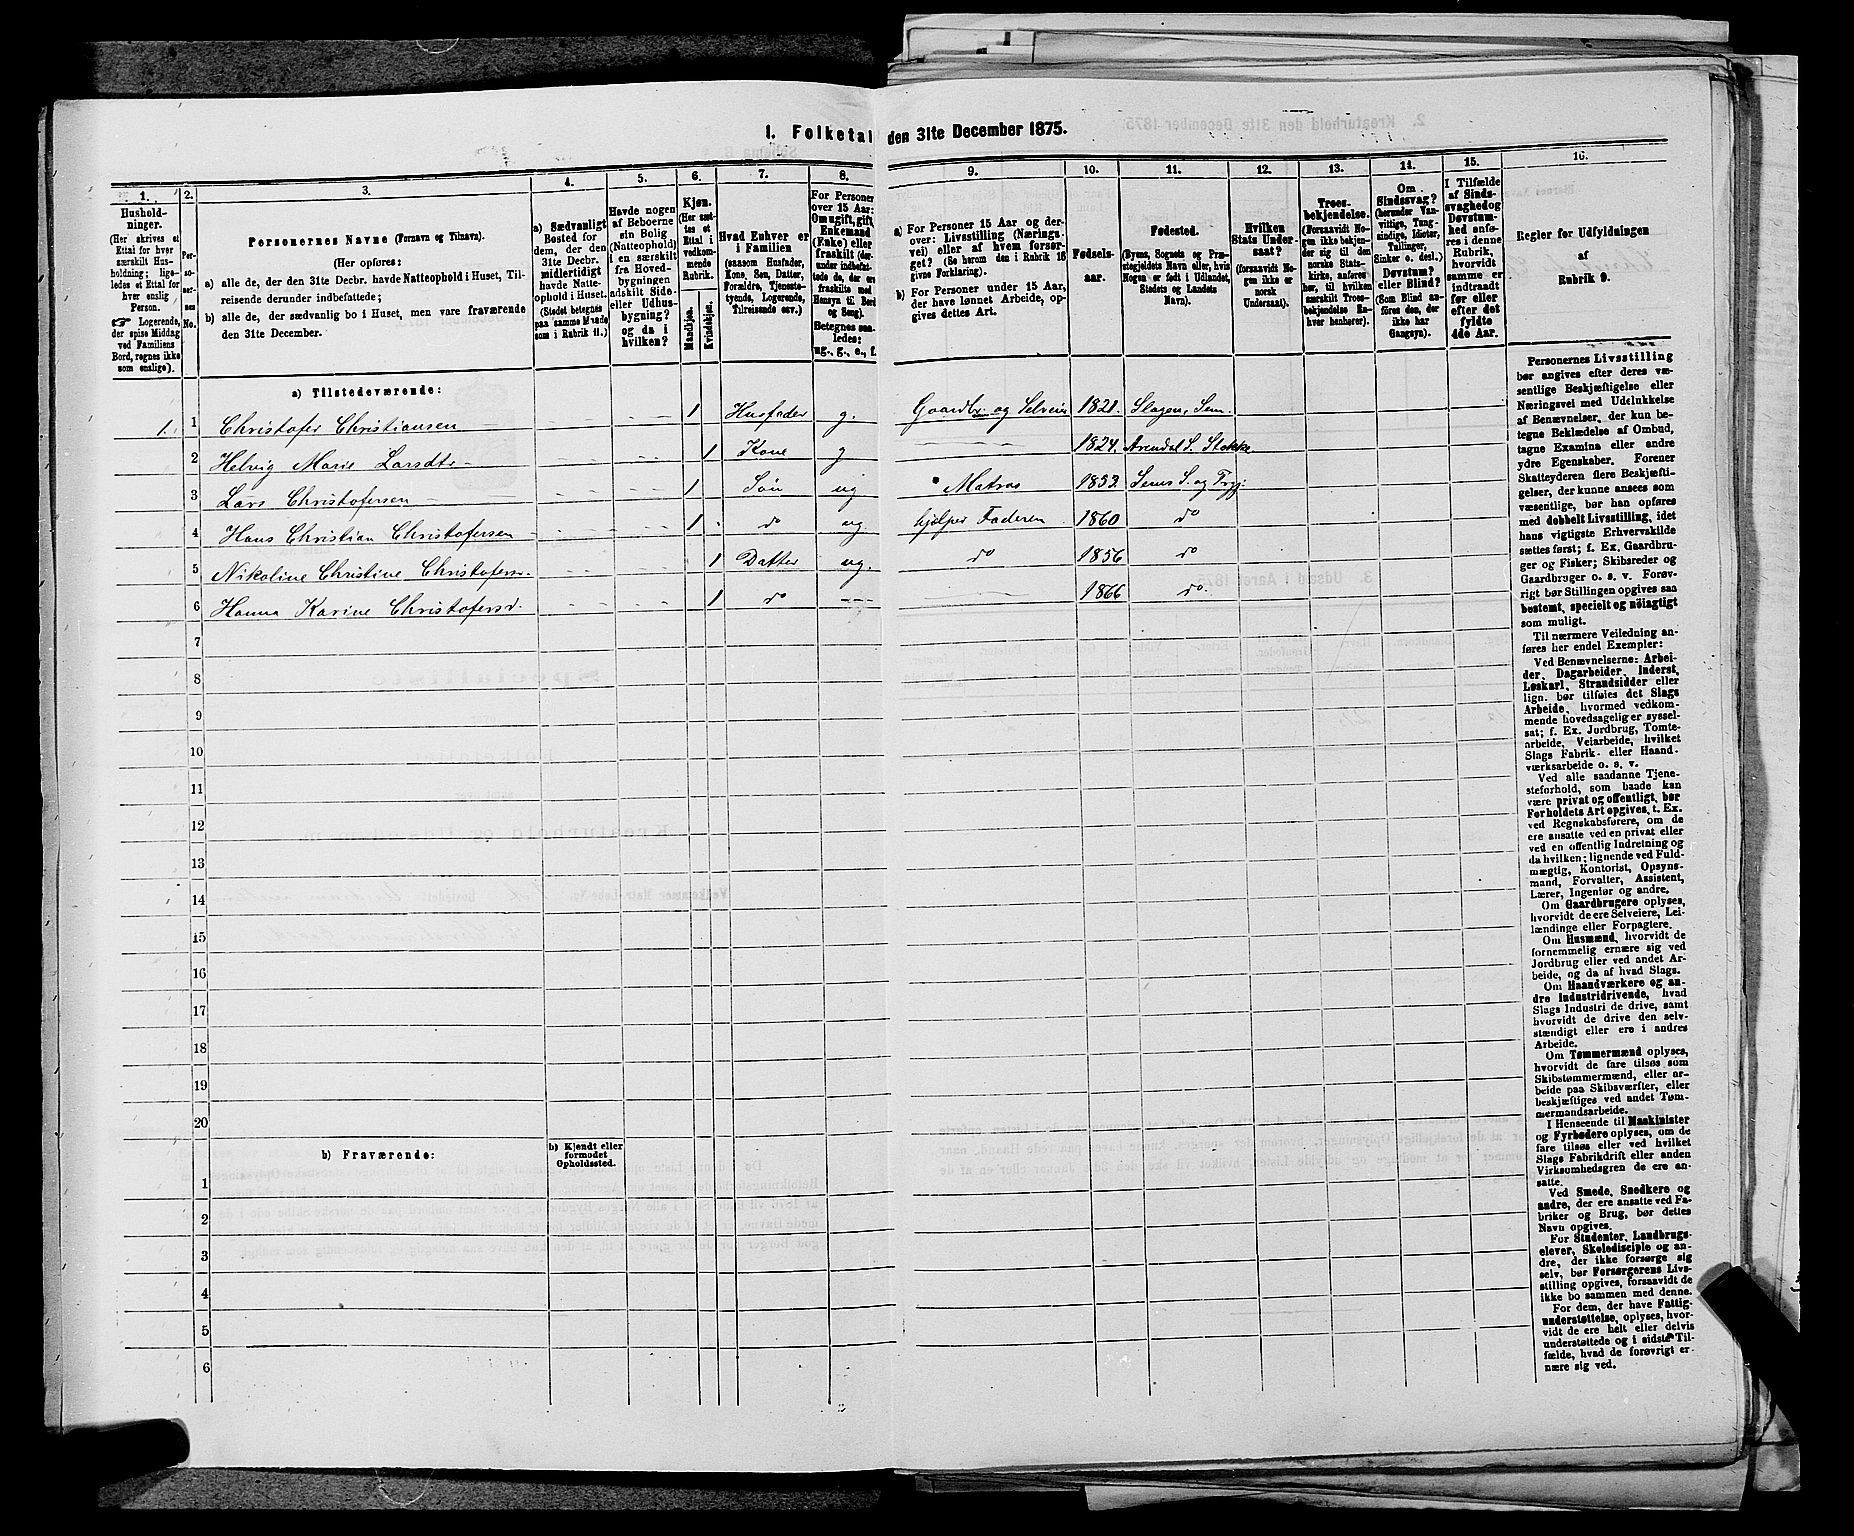 1. Folketal den 31te December 1875.
1. 2. 3. 4. 5. 6. 7. 8. 9. 10. 11. 12. 13. 14. 15. 16.
Hushold-
ninger.
(Her skrives et
Ettal for hver
særskilt Hus-
holdning; lige-
ledes et Ettal for
hver enslig
Person.
☞ Logerende,
der spise Middag
ved Familiens
Bord, regnes ikke
som enslige).
Per-
so-
ner-
nes
No.
Personernes Navne (Fornavn og Tilnavn).
(Her opføres:
a) alle de, der den 31te Decbr. havde Natteophold i Huset, Til-
reisende derunder indbefattede;
b) alle de, der sædvanlig bo i Huset, men vare fraværende
den 31te December.
a) Sædvanligt
Bosted for
dem, der den
31te Decbr.
midlertidigt
havde Natte-
ophold i Huset.
(Stedet betegnes
paa samme Maade
som i Rubrik 11.)
Havde nogen
af Beboerne
sin Bolig
(Natteophold)
i en særskilt
fra Hoved-
bygningen
adskilt Side-
eller Udhus-
bygning?
og da i
hvilken?
Kjøn.
(Her sæt-
tes et
Ettal i
vedkom-
mende
Rubrik.
Mandkjøn.
Kvindekjøn.
Hvad Enhver er
i Familien
(saasom Husfader,
Kone, Søn, Datter,
Forældre, Tjeneste-
tyende, Logerende,
Tilreisende osv.)
For Personer
over 15 Aar:
Om ugift, gift,
Enkemand
(Enke) eller
fraskilt
Betegnes saa-
ledes:
ug., g., e., f.
a) For Personer 15 Aar og der-
over: Livsstilling (Nærings-
vei) eller af hvem forsør-
get? (Se herom den i Rubrik 16
givne Forklaring).
b) For Personer under 15 Aar,
der have lønnet Arbeide, op-
gives dettes Art.
Fødsels-
aar.
Fødested.
(Byens, Sognets og Præ-
stegjeldets Navn eller, hvis
Nogen er født i Udlandet,
Stedets og Landets
Navn).
Hvilken
Stats Under-
saat?
(forsaavidt No-
gen ikke er
norsk
Undersaat).
Troes-
bekjendelse.
(Forsaavidt No-
gen ikke bekjen-
der sig til den
norske Stats-
kirke, anføres
her, til hvilken
særskilt Troes-
bekjendelse En-
hver henhører).
Om
Sindssvag?
(herunder Van-
vittige, Tung-
sindige, Idioter,
Tullinger,
Sinker o. desl.)
Døvstum?
eller Blind?
(Som Blind an-
føres den, der
ikke har
Gangsyn).
I Tilfælde
af Sinds-
svaghed og
Døvstum-
hed anfø-
res i denne
Rubrik,
hvorvidt
samme er
indtraadt
før eller
efter det
fyldte
4de Aar.
Regler for Udfyldningen
af
Rubrik 9.
a) Tilstedeværende:
1. 1 Christofer Christiansen 1 Husfader g. Gaardbr. og Selveier 1821. Slagen, Sem.
2 Helvig Marie Larsdtr 1 Kone g 1824. Arendal S. Stokke
3 Lars Christofersen 1 Søn ug Matros 1853. Sems S. og Prgj.
4 Hans Christian Christofersen 1 do ug. hjælper Faderen 1860 do
5 Nikoline Christine Christofersd. 1 Datter ug. do 1856 do
6 Hanna Karine Christofersd. 1 do 1866 do.
7
8
9
10
11
12
13
14
15
16
17
18
19
20
b) Fraværende:
b) Kjendt eller
formodet
Opholdssted.
1
2
3
4
5
6
Personernes Livsstilling
bør angives efter deres væ-
sentlige Beskjæftigelse eller
Næringsvei med Udelukkelse
af Benævnelser, der kun be-
tegne Beklædelse af Ombud,
tagne Examina eller andre
ydre Egenskaber. Forener
Skatteyderen flere Beskjæfti-
gelser, der kunne ansees som
væsentlige, bør han opføres
med dobbelt Livsstilling, idet
hans vigtigste Erhvervskilde
sættes først; f. Ex. Gaardbru-
ger og Fisker; Skibsreder og
Gaardbruger o. s. v. Forøv-
rigt bør Stillingen opgives saa
bestemt, specielt og nöiagtigt
som muligt.
Til nærmere Veiledning an-
føres her endel Exempler:
Ved Benævnelserne: Arbei-
der, Dagarbeider, Inderst,
Løskarl, Strandsidder eller
lign. bør tilføies det Slags
Arbeide, hvormed vedkom-
mende hovedsagelig er syssel-
sat; f. Ex. Jordbrug, Tomte-
arbeide, Veiarbeide, hvilket
Slags Fabrik- eller Haand-
værksarbeide o. s. v.
Ved alle saadanne Tjene-
steforhold, som baade kan
være privat og offentligt, bør
Forholdets Art opgives, t. Ex.
ved Regnskabsførere, om de
ere ansatte ved en privat eller
ved en offentlig Indretning og
da hvilken; lignende ved Fuld-
mægtig, Kontorist, Opsyns-
mand, Forvalter, Assistent,
Lærer, Ingeniør og andre.
Om Gaardbrugere oplyses,
hvorvidt de ere Selveiere, Lei-
lændinge eller Forpagtere.
Om Husmænd, hvorvidt de
fornemmelig ernære sig ved
Jordbrug eller ved andet Ar-
beide, og da af hvad Slags.
Om Haandværkere og an-
dre Industridrivende, hvad
Slags Industri de drive, samt
hvorvidt de drive den selv-
stændigt eller ere i andres
Arbeide.
Om Tømmermænd oplyses,
hvorvidt de fare tilsøs som
Skibstømmermænd, eller ar-
beide paa Skibsværfter, eller
beskjæftiges ved andet Tøm-
mermandsarbeide.
I Henseende til Maskinister
og Fyrbødere oplyses, om de
fare tilsøs eller ved hvilket
Slags Fabrikdrift eller anden
Virksomhedsgren de ere an-
satte.
Ved Smede, Snedkere og
andre, der ere ansatte ved Fa-
briker og Brug, bør dettes
Navn opgives.
For Studenter, Landbrugs-
elever, Skoledisciple og an-
dre, der ikke forsørge sig
selv, bør Forsørgerens Livs-
stilling opgives, forsaavidt de
ikke bo sammen med denne.
For dem, der have Fattig-
understøttelse, oplyses, hvor-
vidt de ere helt eller delvis
understøttede og i sidste Til-
fælde, hvad de forøvrigt er-
nære sig ved.